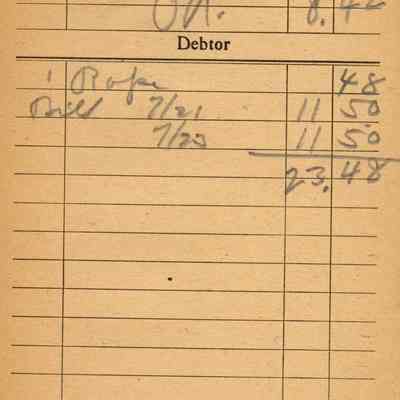 8.44
Debtor
1 Rope 48
Bill 7/21 11 50
7/25 11 50
23.48